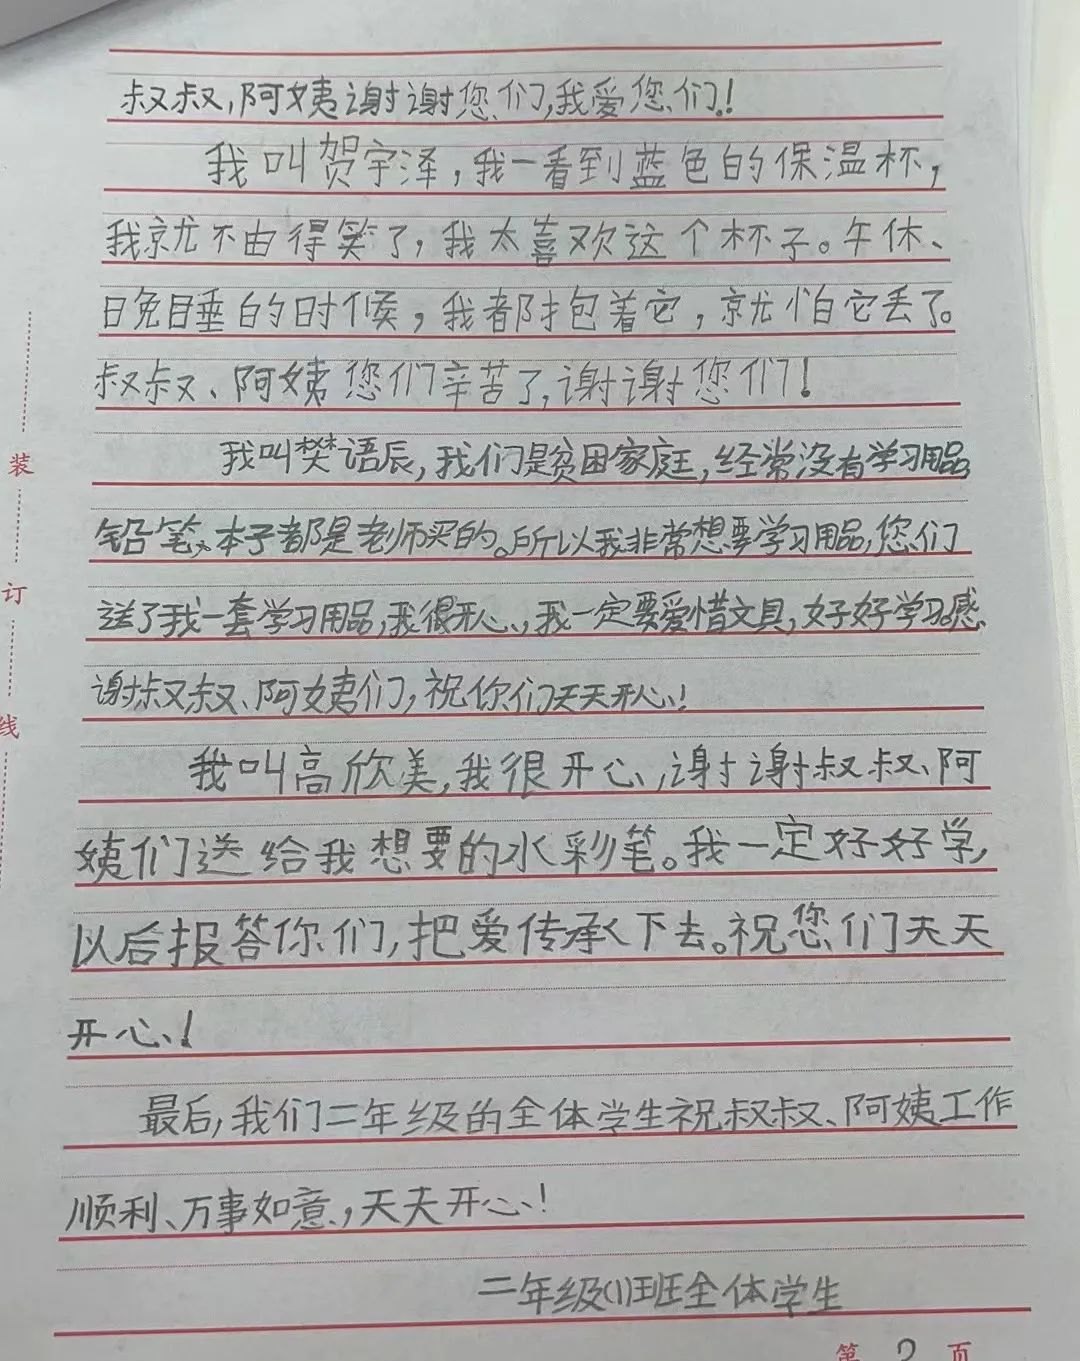 叔叔,阿姨谢谢您们,我爱您们!
我叫贺宇泽,我一看到蓝色的保温杯,
我就不由得笑了,我太喜欢这个杯子。午休、
晚睡的时候,我都抱着它,就怕它丢了。
叔叔、阿姨您们辛苦了,谢谢您们!
我叫樊语辰,我们是贫困家庭,经常没有学习用品
铅笔、本子都是老师买的。所以我非常想要学习用品,您们
送了我一套学习用品,我很开心,我一定要爱惜文具,好好学习。感
谢叔叔、阿姨们,祝你们天天开心!
我叫高欣美,我很开心,谢谢叔叔、阿
姨们送给我想要的水彩笔。我一定好好学,
以后报答你们,把爱传承下去。祝您们天天
开心!
最后,我们二年级的全体学生祝叔叔、阿姨工作
顺利、万事如意,天天开心!
二年级(1)班全体学生
第 2 页
装
订
线